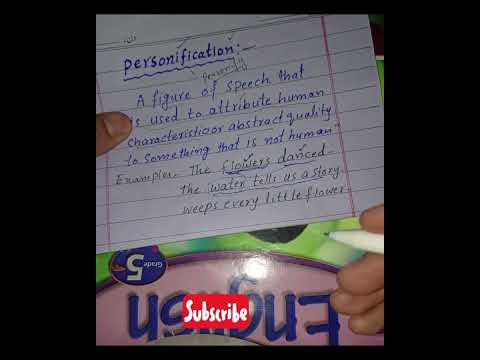 personification:-
personify
A figure of speech that
is used to attribute human
characteristic or abstract quality
to something that is not human"
Examples. The flowers danced
The water tells us a story
weeps every little flower.
Grade 5
English
Subscribe